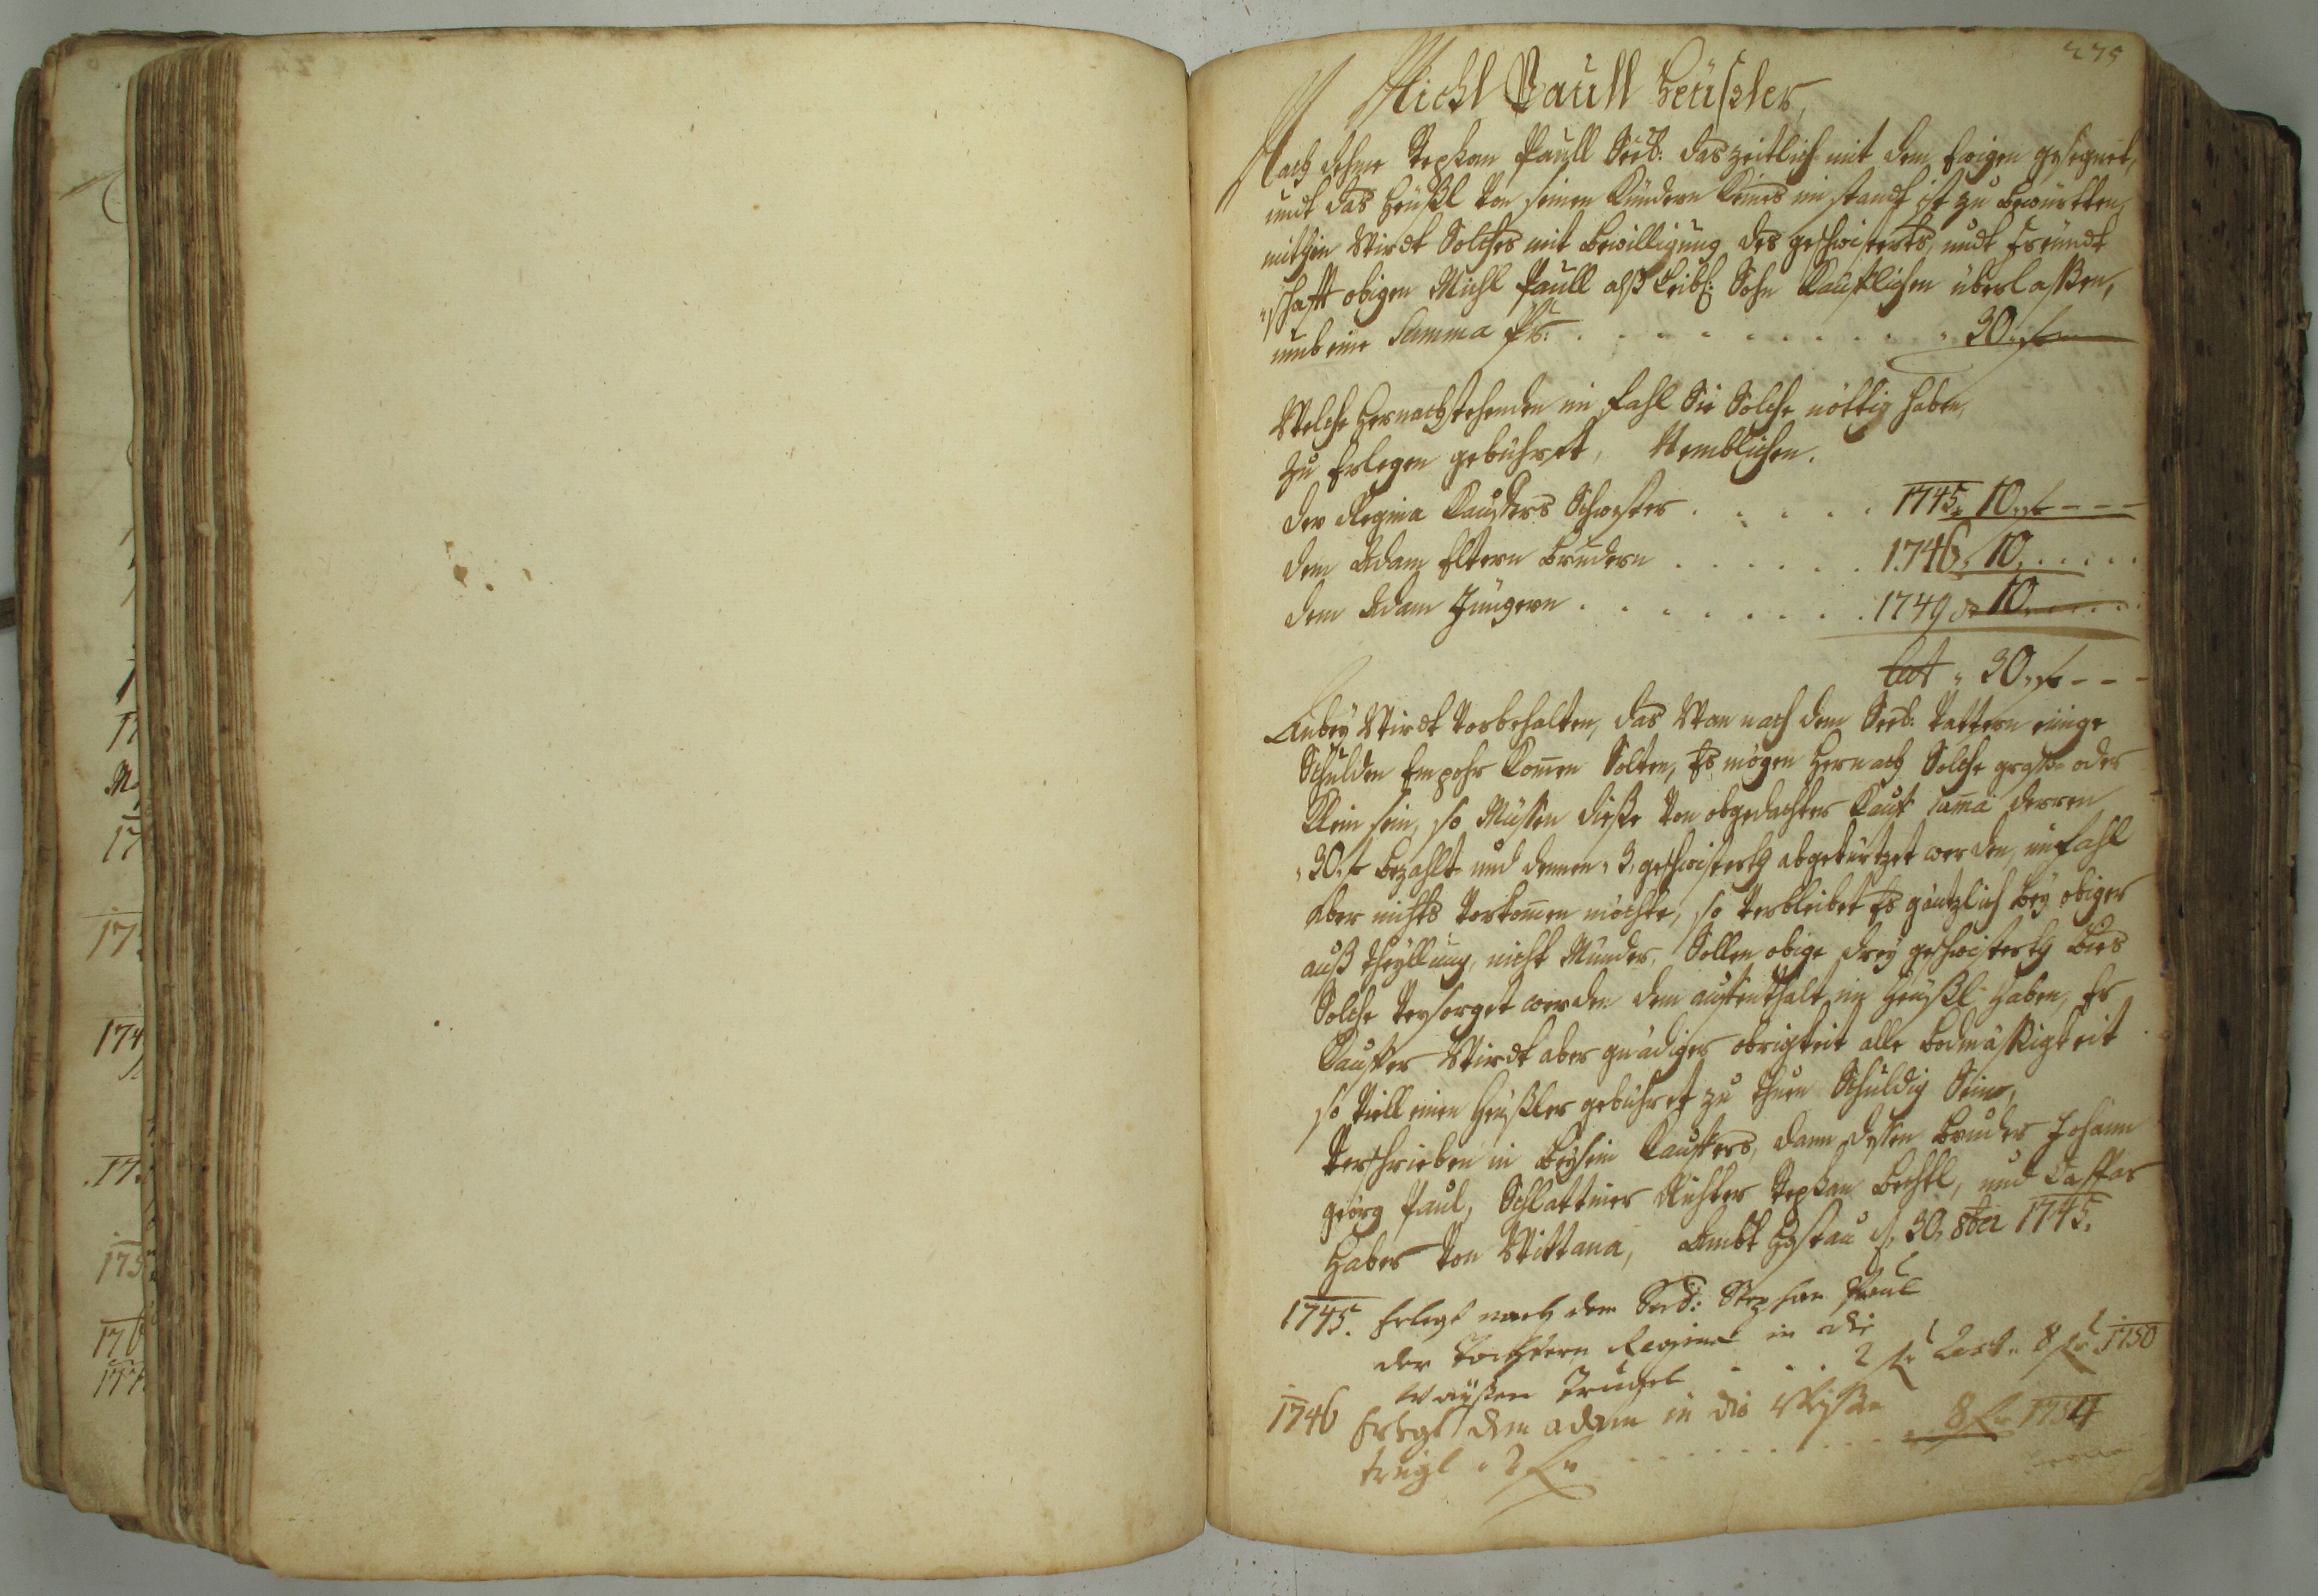 275
Michl Paull Heüszler,
Nach dehme Stephan Paull Seel: das zeitlich mit dem Ewigen gesegnet,
undt das Heüßl von seinen Kündern Keines im standt ist zu bewürtten,
mithin Wirdt Solches mit bewilligung des geschwisterts, undt freündt
schafft obigen Michl Paull alß leibl: Sohn Kaufflichen überlaßen,
umb eine Summa Pr: . . . . . . . . . 30 f
Welche Hernachstehenden im fahl Sie Solche nöttig haben,
zu Erlegen gebühret, Nemblichen.
der Regina Kauffers Schwester . . . . . 1745. 10 f - - -
dem Adam Eltern brudern . . . . . . 1746. 10 . . . . .
dem Adam Jüngern . . . . . . . 1749 10 . . . . .
lat 30 f - - -
Anbey Wirdt Vorbehalten, das Wan nach dem Seel: Vattern einige
Schulden Empohr Komen Solten, Es mögen Hernach Solche groß oder
Klein sein, so Müssen dieße Von obgedachter Kauf Sama derren
30 f bezahlt und dennen 3 geschwisterth abgekürtzet werden, im fahl
Aber nichts Vorkomen möchte, so Verbleibet Es gäntzlich bey obiger
auß theyllung, nicht Münder Sollen obige drey geschwisterth bies
Solche Versorget werden den auffenthalt im Heüßl Haben, Er
Kauffer Wirdt aber gnädiger obrigkeit alle bodmäßigkeit
so Viell einen Heüßler gebühret zu thuen Schuldig Sein,
Verschrieben in beysein Kauffers, dann dessen bruder Johann
georg Paul, Schlattiner Richter Stephan bechtl, und Casspar
Haber Von Wittana, Ambt Hostau d. 30. 8ber 1745.
1745. Erlegt nach dem Seel: Stephan Paul
der Tochtern Regina in die
Waysßen Truhel . . . 2 f Rest. 8 f 1750
1746 Erlegt dem adam in die Wayßen
trugl 2 f . . . . . . . . . 8 f 1754